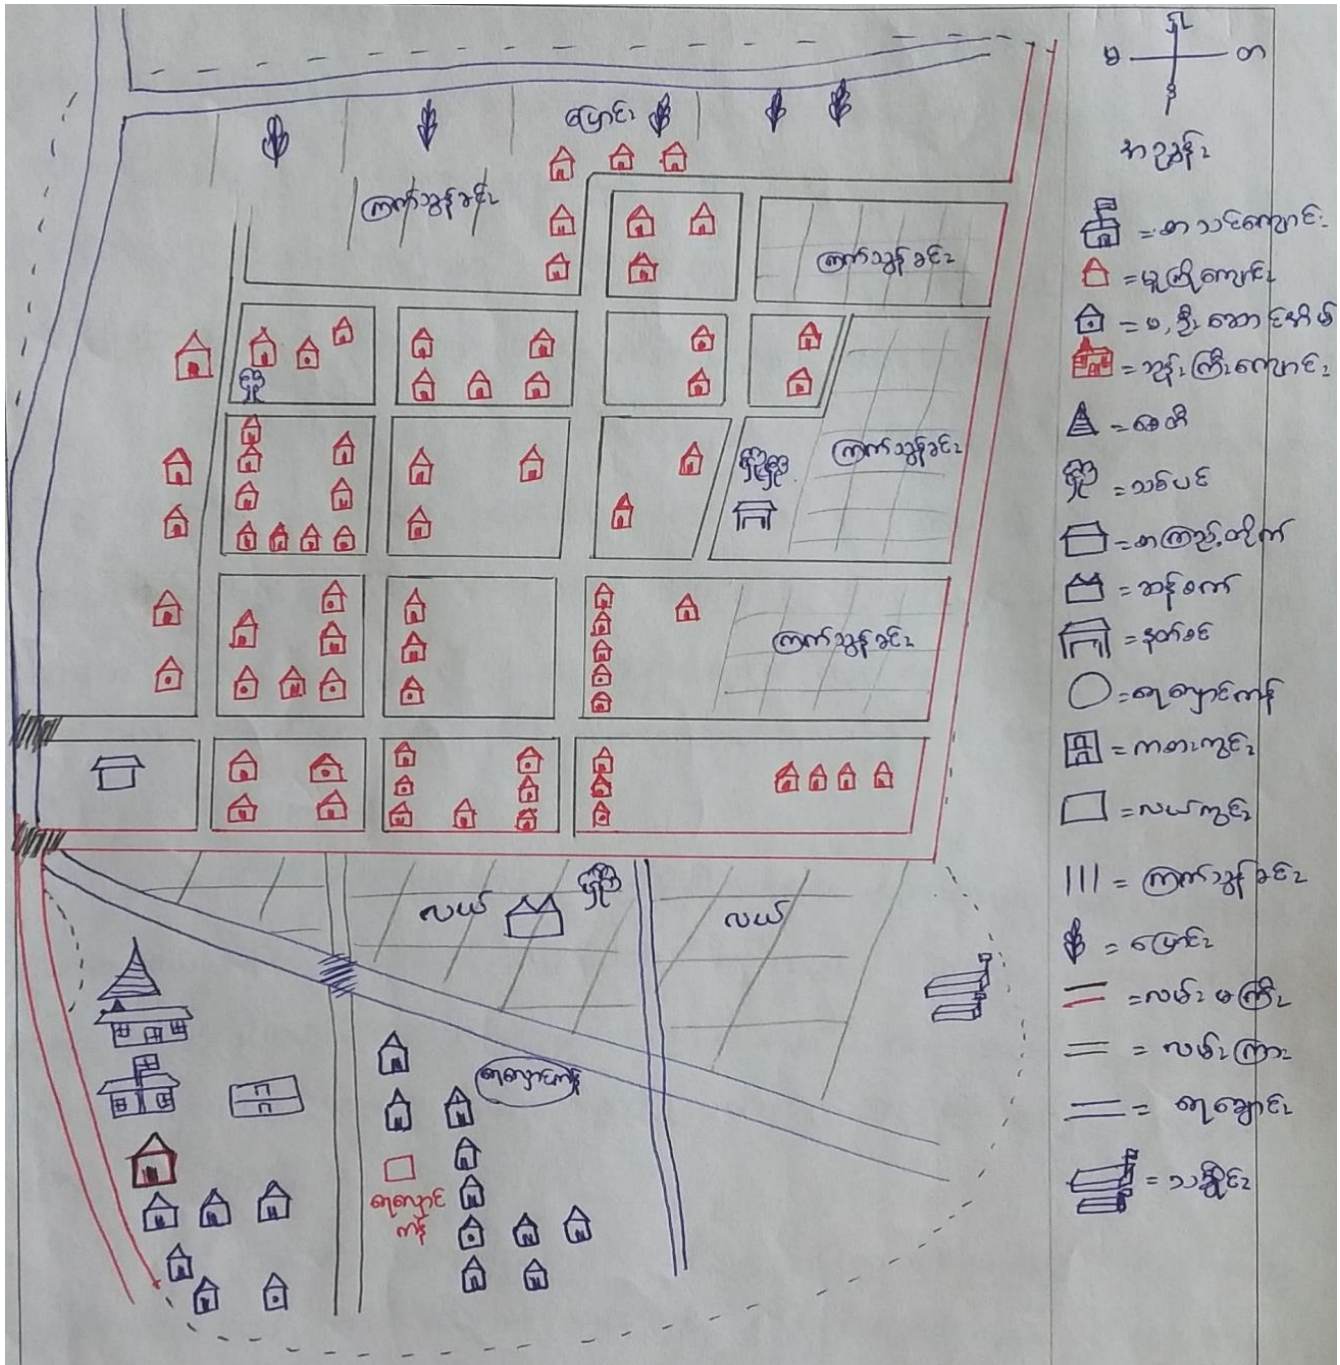 မြောင်း
ကြက်သွန်ခင်း
ကြက်သွန်ခင်း
ကြက်သွန်ခင်း
ကြက်သွန်ခင်း
လယ်
လယ်
ရေလှောင်ကန်
ရေလှောင်
ကန်
အညွှန်း
= စာသင်ကျောင်း
= မူကြိုကျောင်း
= ဘုန်းကြီးကျောင်း
= စေတီ
= သစ်ပင်
= စာကြည့်တိုက်
= ဆန်စက်
= နတ်စင်
= ရေလှောင်ကန်
= ကစားကွင်း
= လယ်ကွင်း
= ကြက်သွန်ခင်း
= မြောင်း
= လမ်းမကြီး
= လမ်းကြား
= ရေချောင်း
= သင်္ချိုင်း